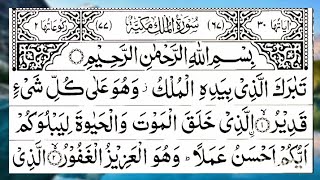 اٰیاتها ٣٠ (٦٧) سُوْرَةُ الْمُلْكِ مَكِّیَّةٌ (٧٧) رکوعاتها ٢
بِسْمِ اللّٰهِ الرَّحْمٰنِ الرَّحِیْمِ
تَبٰرَكَ الَّذِیْ بِیَدِهِ الْمُلْكُ ؗ وَهُوَ عَلٰی كُلِّ شَیْءٍ
قَدِیْرُ ۙ﴿١﴾ الَّذِیْ خَلَقَ الْمَوْتَ وَالْحَیٰوةَ لِیَبْلُوَكُمْ
اَیُّكُمْ اَحْسَنُ عَمَلًا ؕ وَهُوَ الْعَزِیْزُ الْغَفُوْرُ ۙ﴿٢﴾ الَّذِیْ